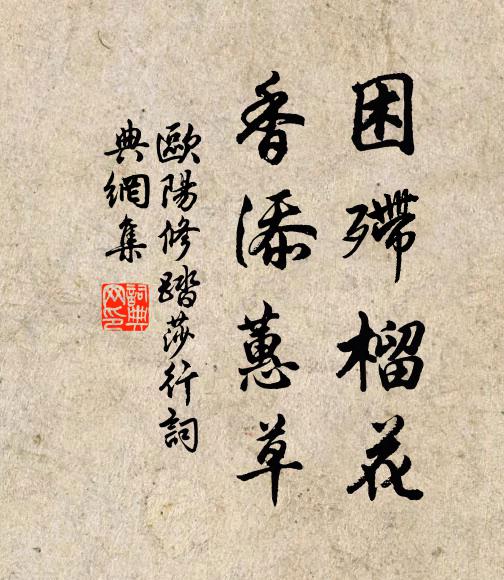 困殢榴花
香添蕙草
歐陽修踏莎行詞
典網集
詞典網印